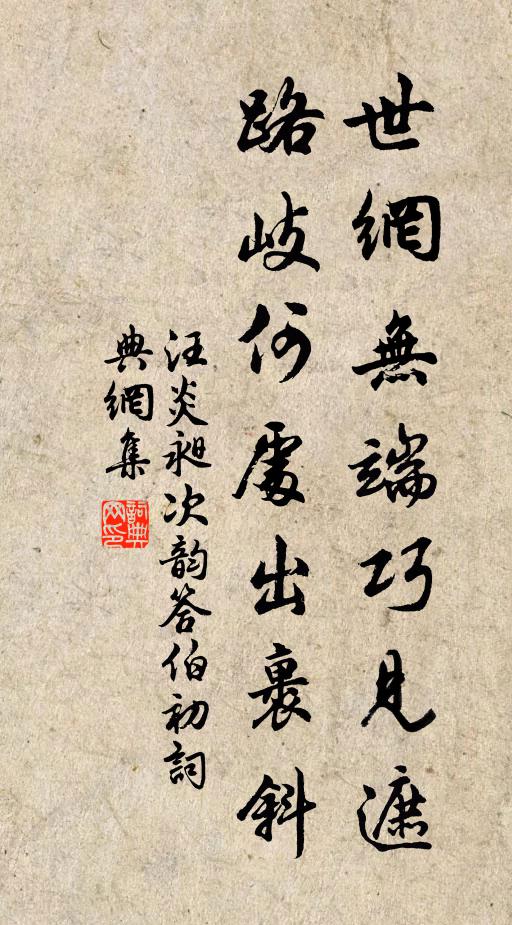 世網無端巧見遮
路岐何處出裹斜
汪炎昶次韵答伯初詞
典網集
詞典網印